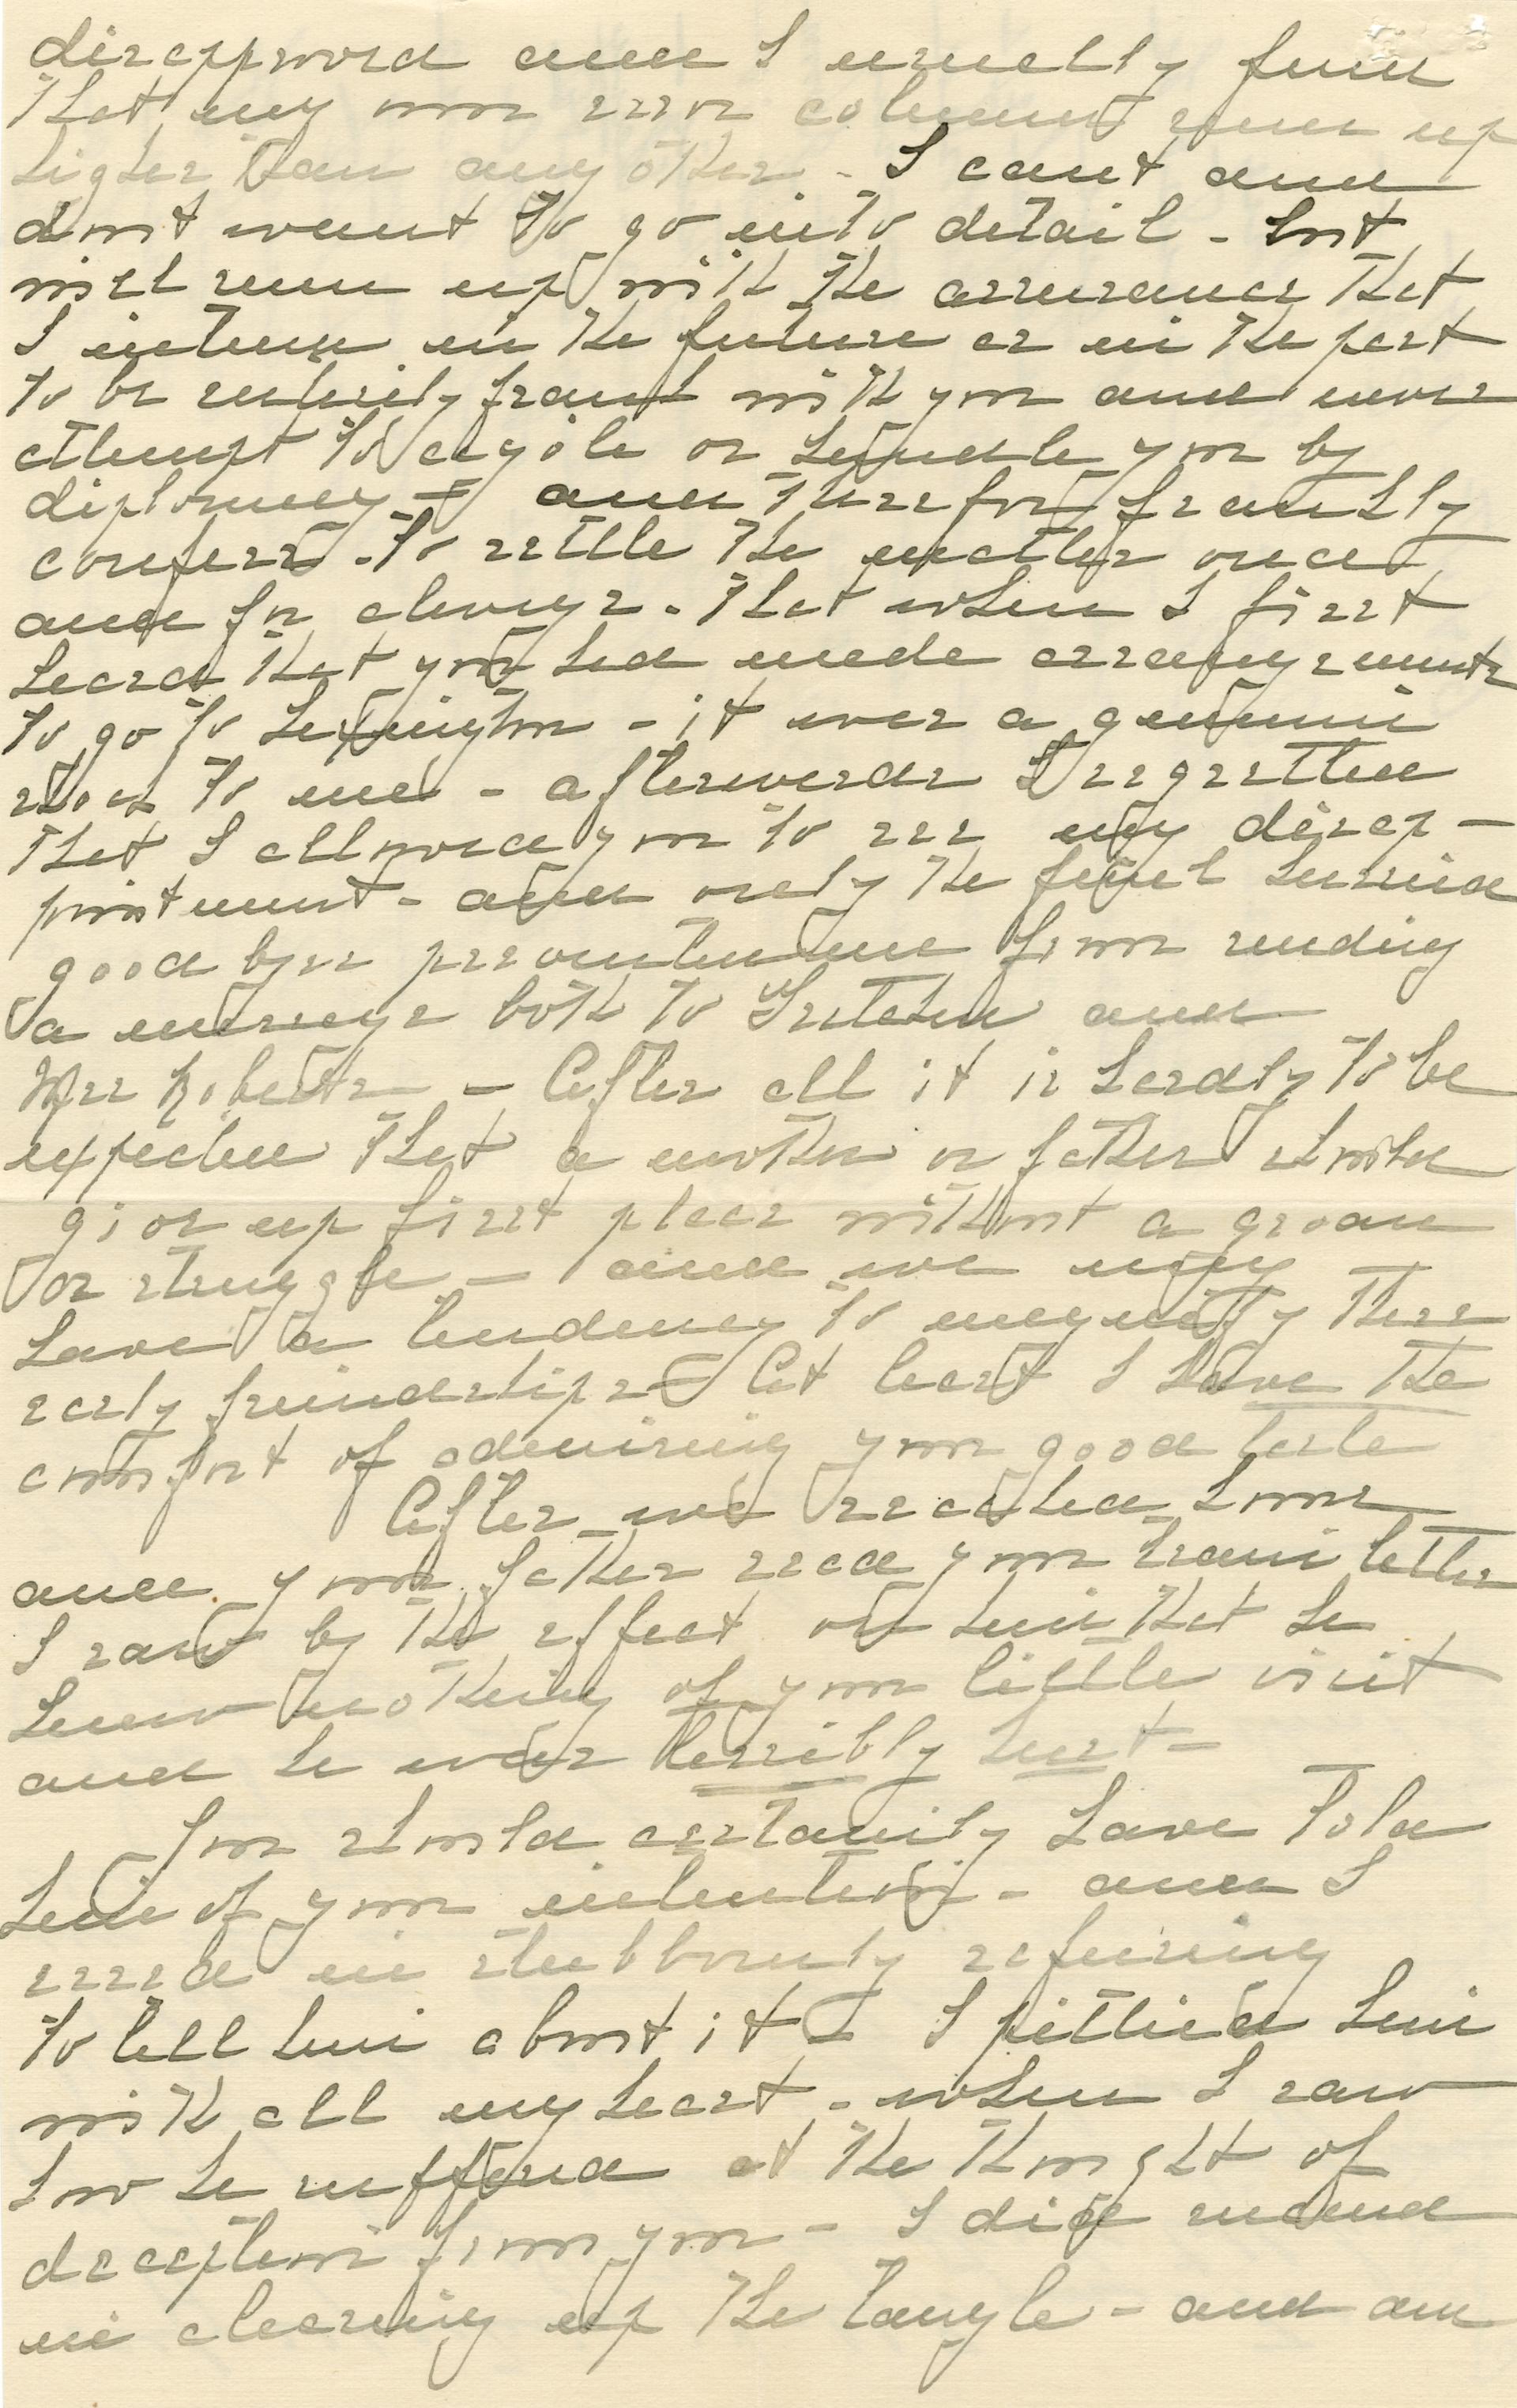 disapproved and I usually find
that my own error column runs up
higher than any other. - I cant and
dont want to go into detail - but
will sum up with the assurance that
I intend in the future as in the past
to be entirely frank with you and never
attempt to cajole or handle you by
diplomacy - and therefore frankly
confess - to settle the matter once
and for always - that when I first
heard that you had made arrangements
to go to Lexington - it was a genuine
shock to me - afterwards I regretted
that I allowed you to see my disap-
pointment - and only the final hurried
good byes prevented me from sending
a message both to Gretchen and
Mrs Roberts - After all it is hardly to be
expected that a mother or father should
give up first place without a groan
or struggle - and we may
have a tendency to magnify these
early friendships - At least I have the
comfort of admiring your good taste
After we reached home
and your father read your train letter
I saw by the effect on him that he
knew nothing of your little visit
and he was terribly hurt -
You should certainly have told
him of your intention - and I
erred in stubbornly refusing
to tell him about it - I pittied him
with all my heart - when I saw
how he suffered at the thought of
deception from you - I did succeed
in clearing up the tangle - and am